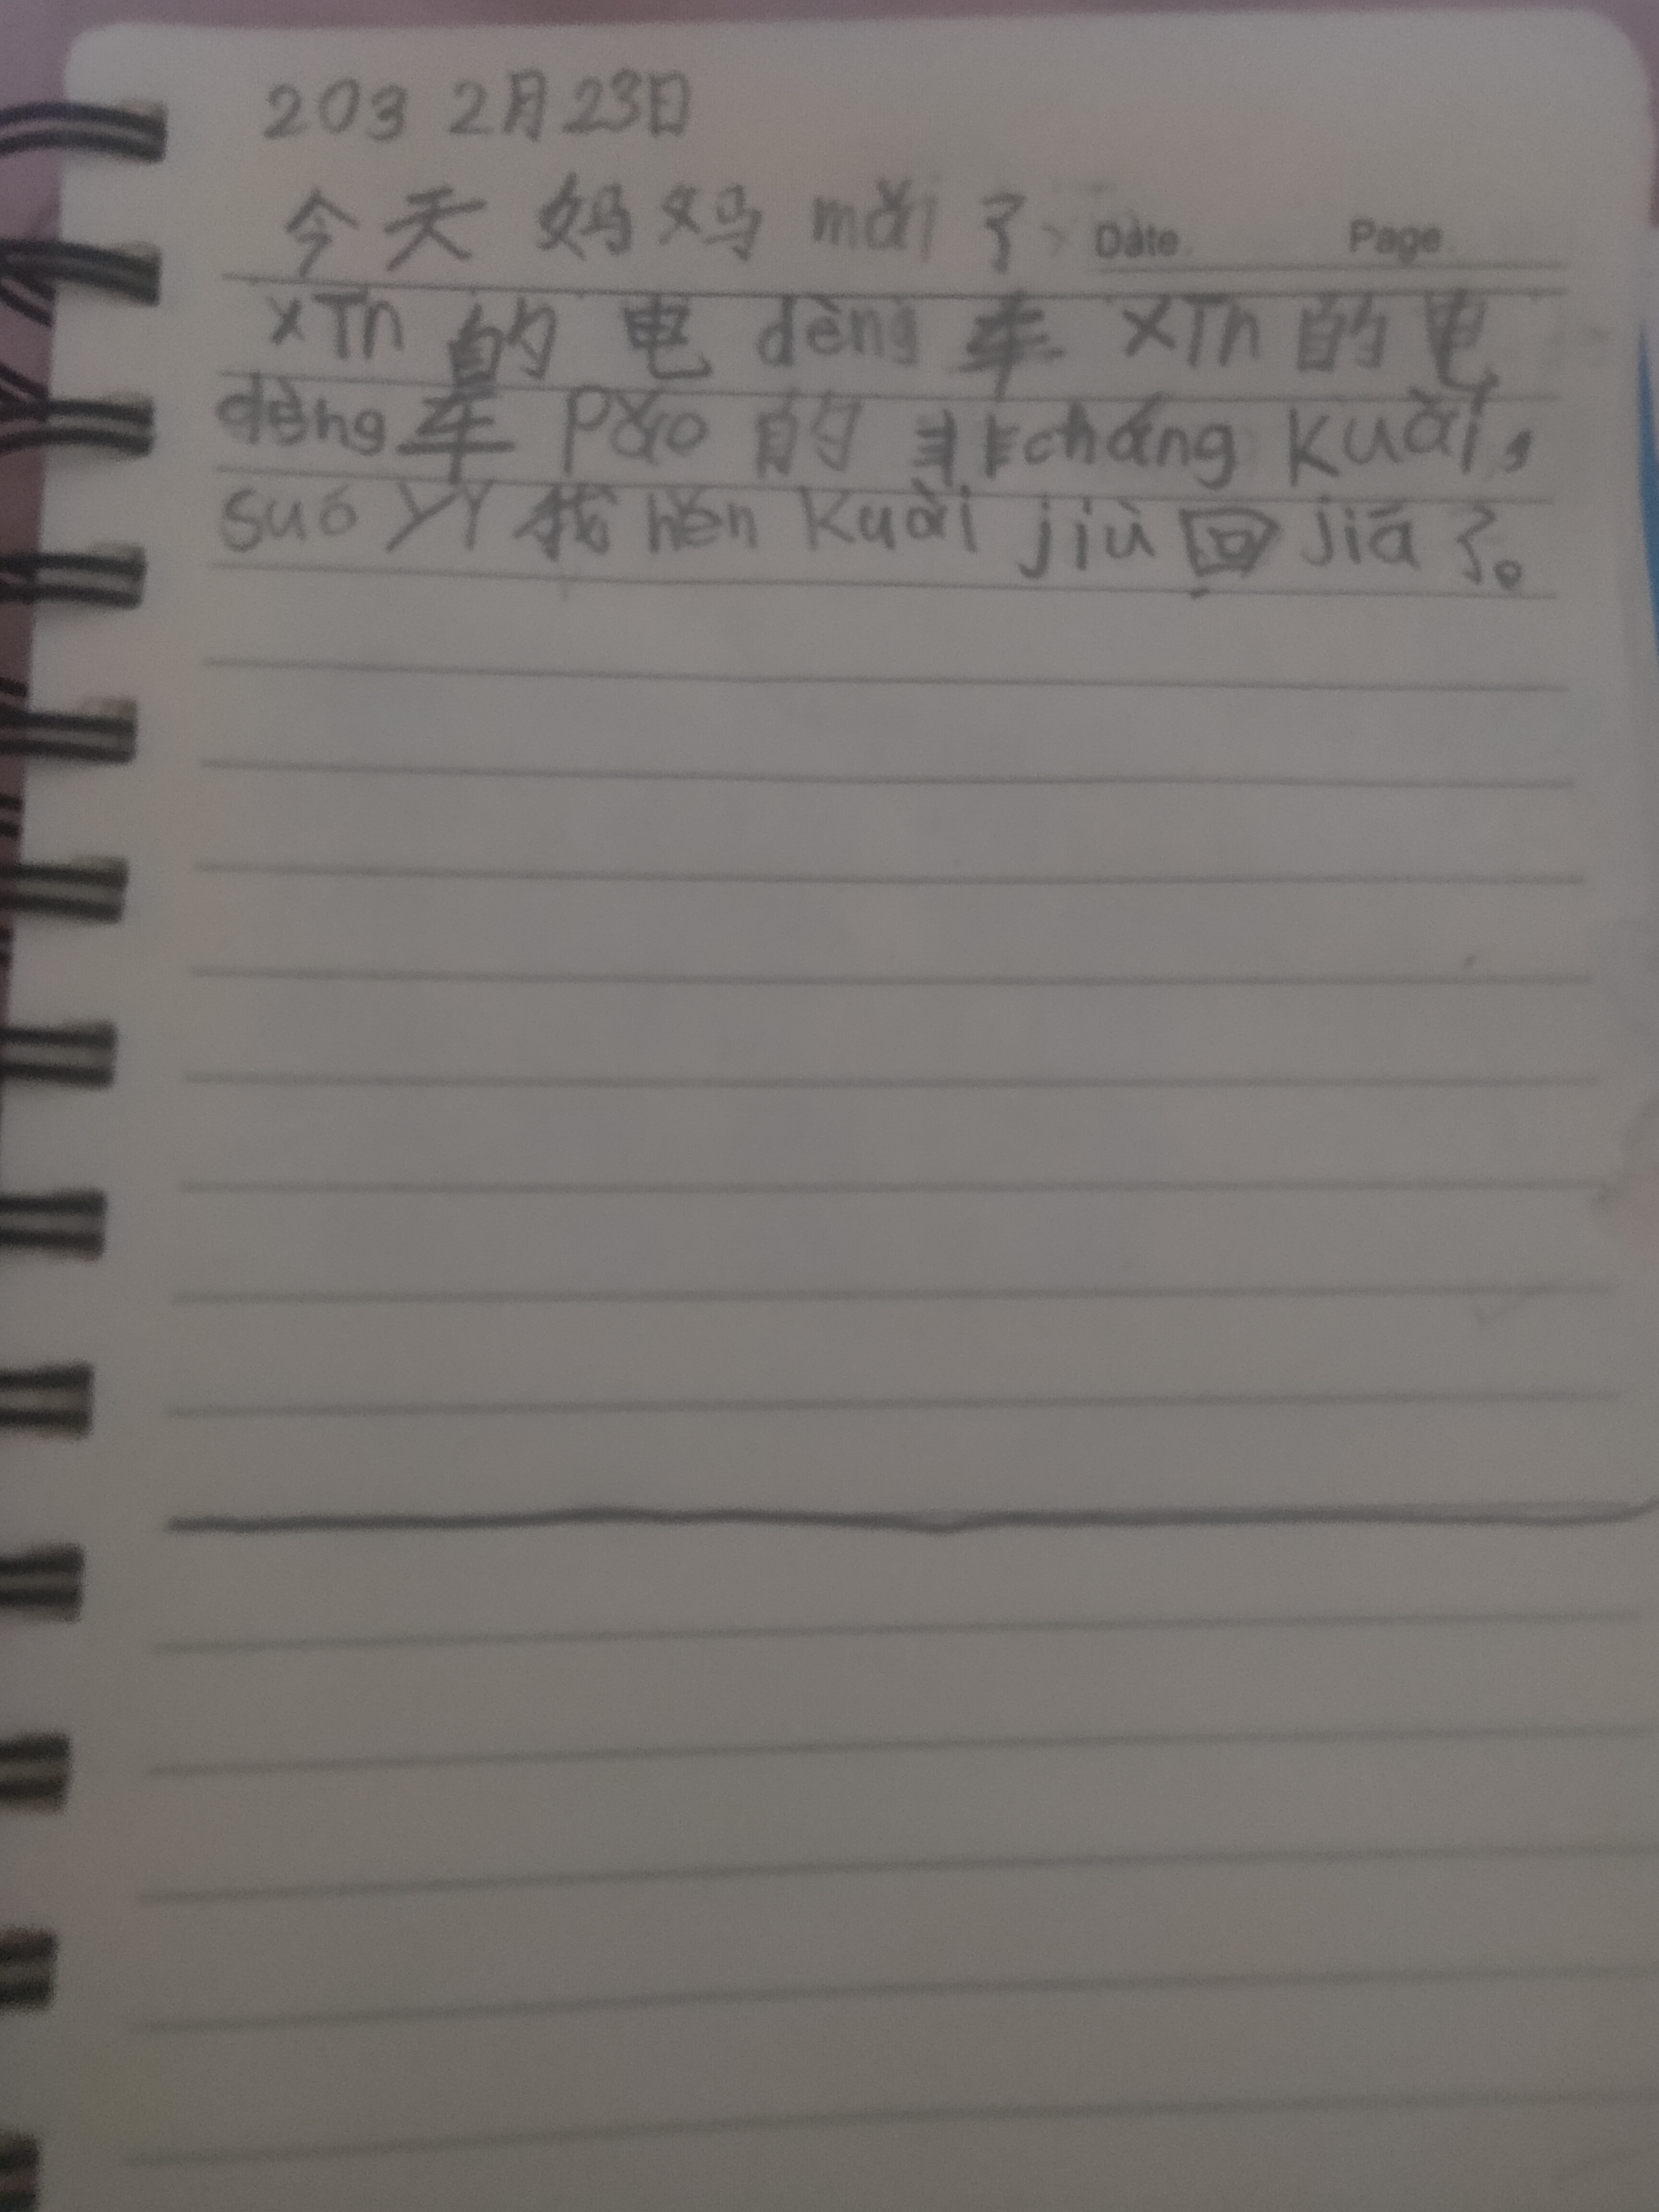 203 2月23日
今天 妈妈 mǎi 了
Date. Page
xīn 的 电 dèng 车 xīn 的 电
dèng 车 Pǎo 的 非cháng Kuài,
suó yǐ 我 hěn Kuài jiù 回 jiā 了。